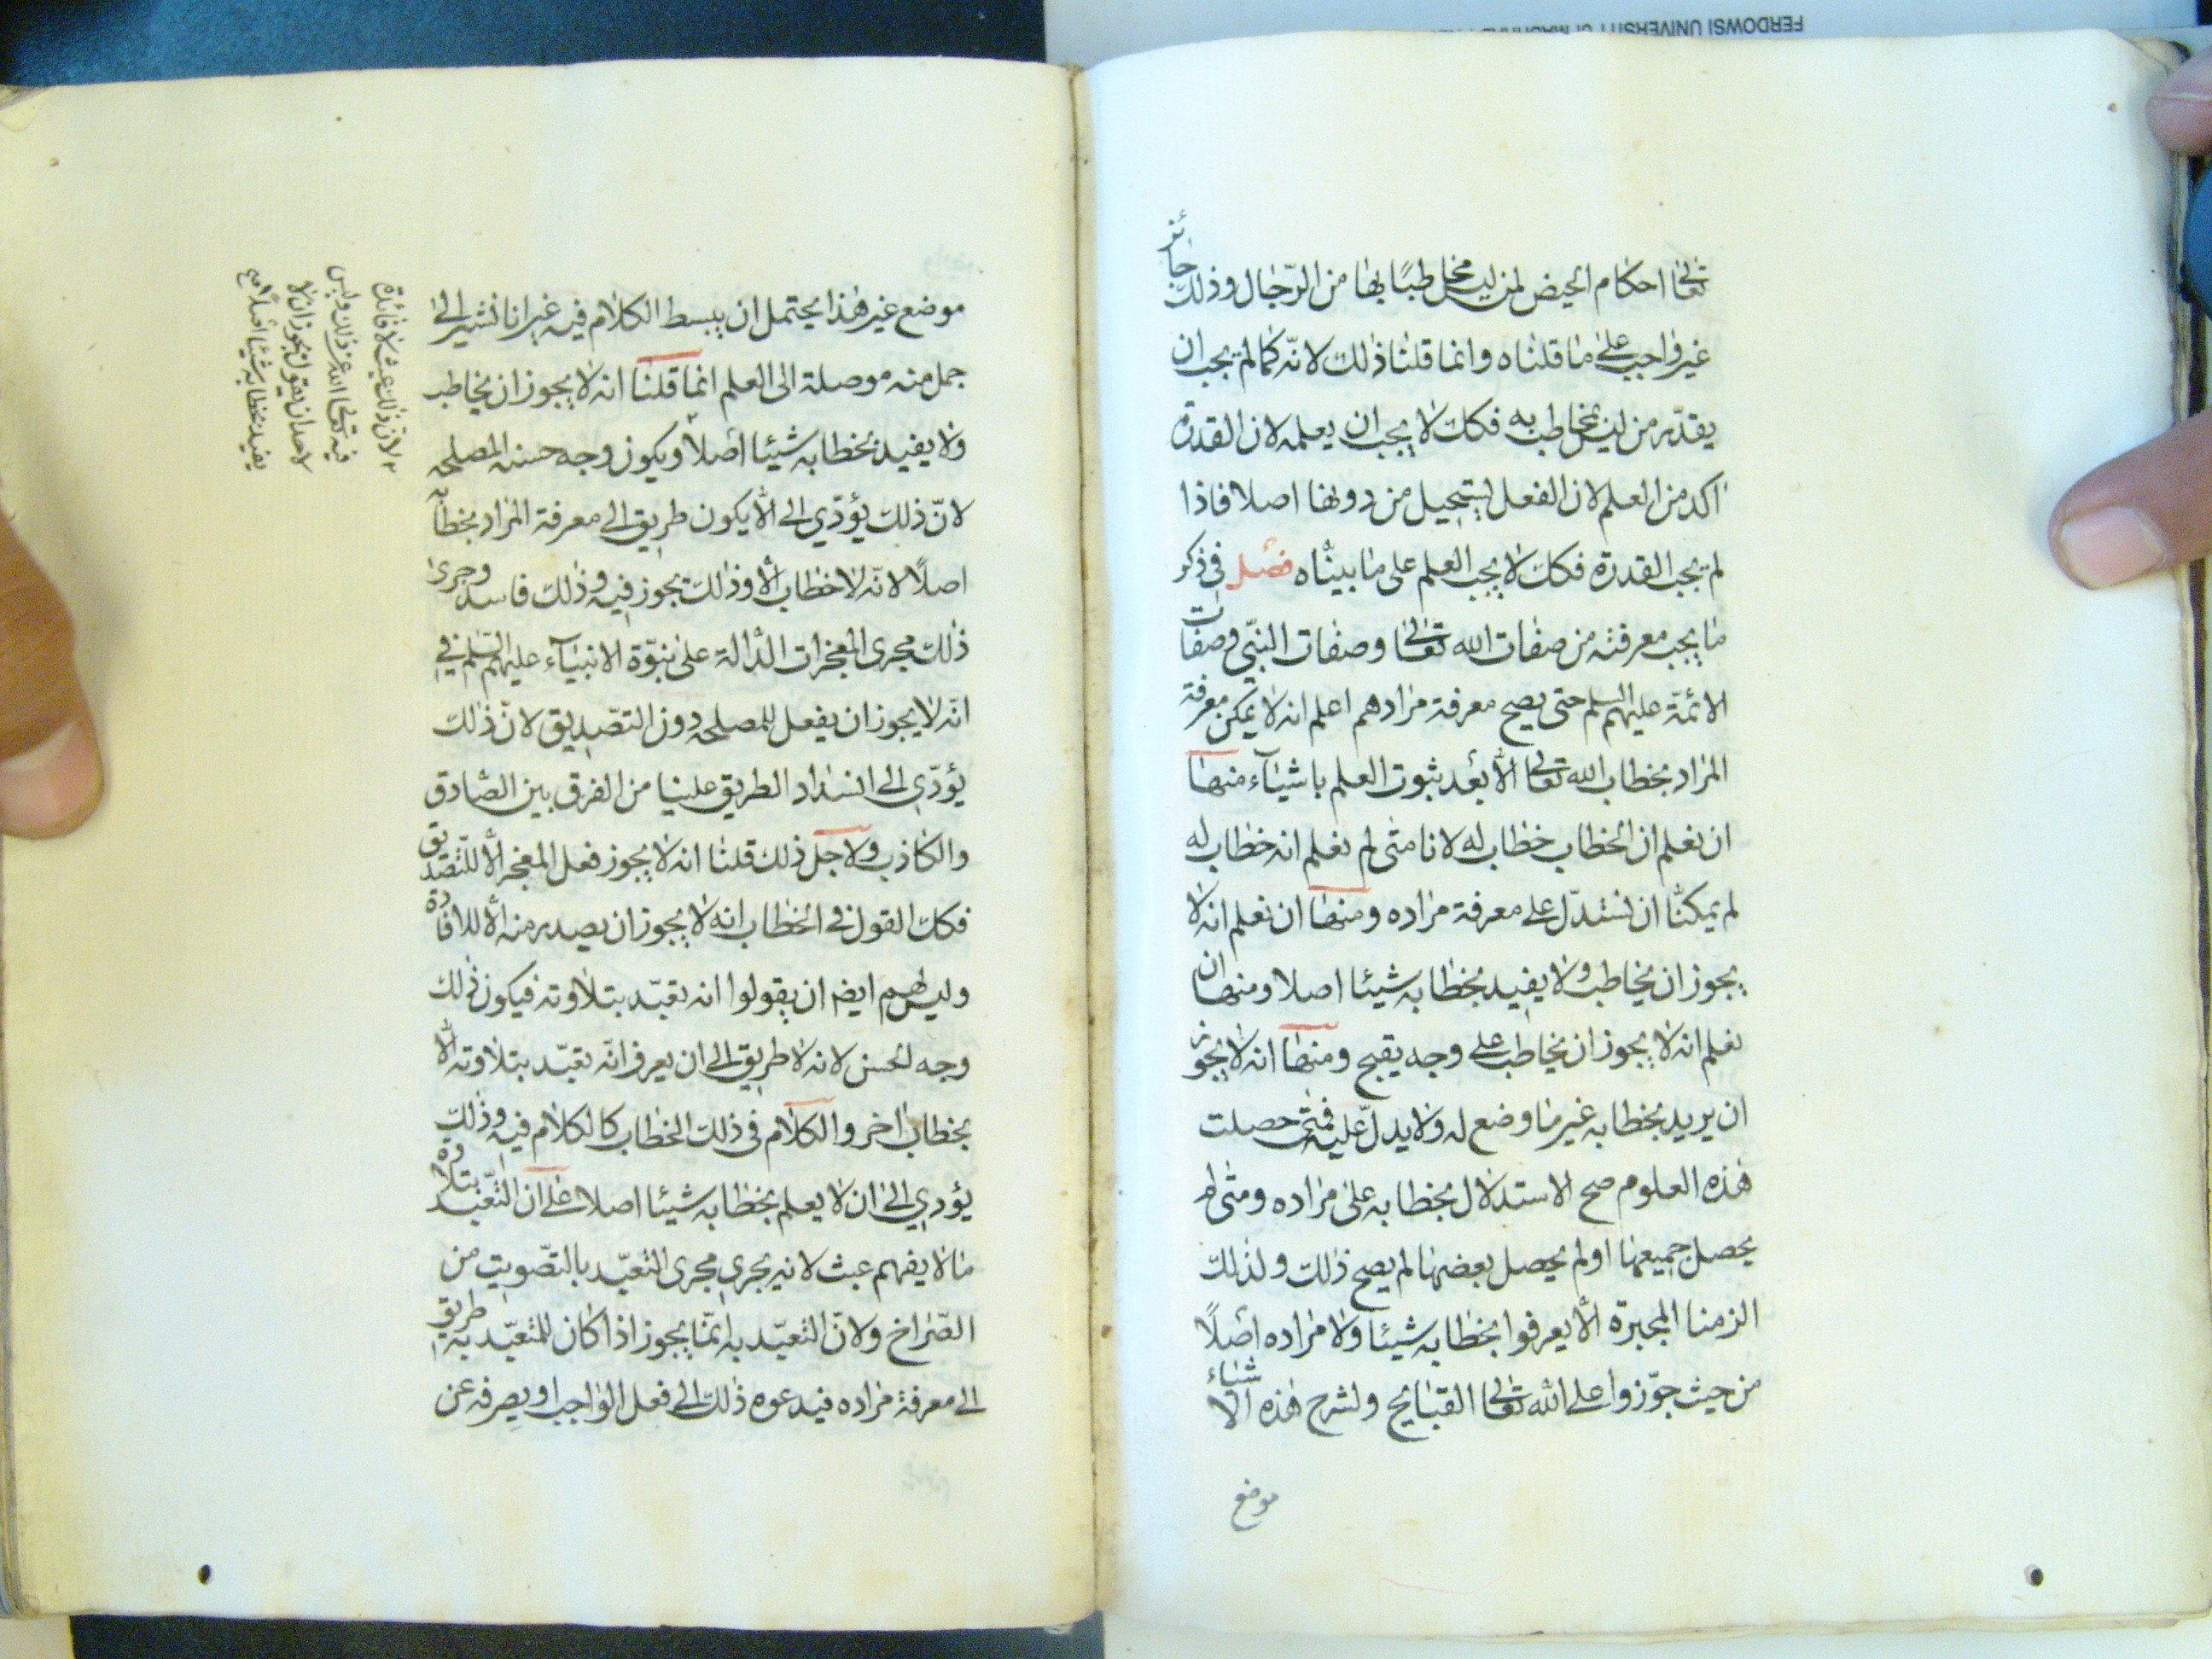 FERDOWSI UNIVERSITY of MASHHAD
تعالى احكام الحيض لمن ليس مخاطبًا بها من الرّجال وذلك جائز
غير واجب على ما قلناه وانما قلنا ذلك لانّه كما لم يجب ان
يقدّر من ليس يخاطب به فكك لا يجب ان يعلمه لان القدرة
اكد من العلم لان الفعل يستحيل من دونها اصلا فاذا
لم يجب القدرة فكك لا يجب العلم على ما بينّاه فصل في ذكر
ما يجب معرفته من صفات الله تعالى وصفات النبّي وصفات
الائمّة عليهم السلم حتى يصح معرفة مرادهم اعلم انه لا يمكن معرفة
المراد بخطاب الله تعالى الّا بعد ثبوت العلم باشياء منها
ان نعلم ان الخطاب خطاب له لانا متى لم نعلم انه خطاب له
لم يمكنّا ان نستدلّ على معرفة مراده ومنها ان نعلم انه لا
يجوز ان يخاطب ولا يفيد بخطابه شيئا اصلا ومنها ان
نعلم انه لا يجوز ان يخاطب على وجه يقبح ومنها انه لا يجوز
ان يريد بخطابه غير ما وضع له ولا يدلّ عليه فمتى حصلت
هذه العلوم صح الاستدلال بخطابه على مراده ومتى لم
يحصل جميعها او لم يحصل بعضها لم يصح ذلك ولذلك
الزمنا المجبرة الّا يعرفوا بخطابه شيئا ولا مراده اصلًا
من حيث جوّزوا على الله تعالى القبايح ولشرح هذه الاشياء
موضع
موضع غير هذا يحتمل ان يبسط الكلام فيه غير انا نشير الى
جمل منه موصلة الى العلم انما قلنا انه لا يجوز ان يخاطب
ولا يفيد بخطابه شيئا اصلا ويكون وجه حسنه المصلحه
لانّ ذلك يؤدّي الى الّا يكون طريق الى معرفة المراد بخطابه
اصلًا لانّه لا خطاب الّا وذلك يجوز فيه وذلك فاسد وجرى
ذلك مجرى المعجزات الدّالة على نبوّة الانبياء عليهم السّلم في
انّه لا يجوز ان يفعل للمصلحه دون التصّديق لانّ ذلك
يؤدّي الى انسداد الطريق علينا من الفرق بين الصّادق
والكاذب ولاجل ذلك قلنا انه لا يجوز فعل المعجز الّا للتّصديق
فكك القول في الخطاب انه لا يجوز ان يصدر منه الّا للافادة
وليس لهم ايضا ان يقولوا انه تعبّد بتلاوته فيكون ذلك
وجه لحسن لانه لا طريق الى ان يعرف انّه تعبّد بتلاوته الّا
بخطاب اخر والكلام في ذلك الخطاب كالكلام فيه وذلك
يؤدي الى ان لا يعلم بخطابه شيئا اصلا على ان التّعبّد بتلاوة
ما لا يفهم عبث لانه يجري مجرى التعبّد بالتصّويت من
الصّراخ ولانّ التعبّد به انّما يجوز اذا كان للتعبّد به طريق
الى معرفة مراده فيدعوه ذلك الى فعل الواجب او يصرفه عن
لان ذلك عبث لا فائدة
فيه تعالى الله عن ذلك وليس
لاحد ان يقول يجوز ان لا
يفيد بخطابه شيئا اصلًا